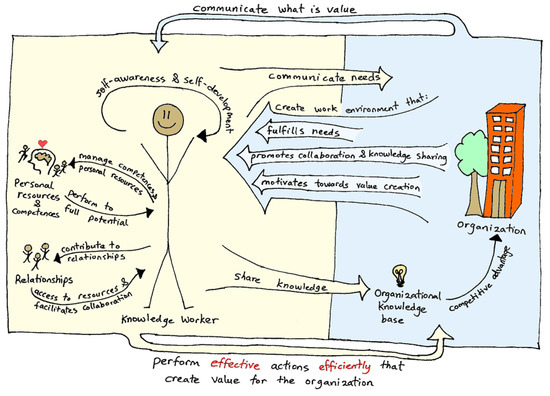 communicate what is value
self-awareness & self-development
communicate needs
create work environment that:
fulfills needs
promotes collaboration & knowledge sharing
motivates towards value creation
manage competences &
personal resources
Personal
resources
&
competences
perform to
full potential
contribute to
relationships
Relationships
access to resources &
facilitates collaboration
Knowledge Worker
share knowledge
Organizational
Knowledge
base
competitive advantage
Organization
perform effective actions efficiently that
create value for the organization